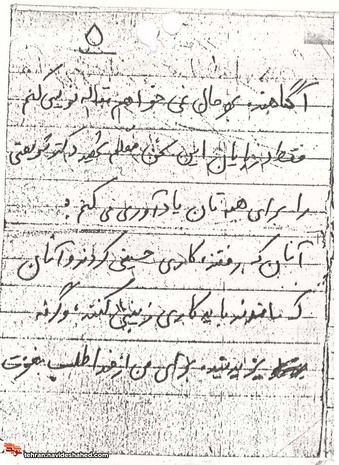 ۵
آگاهند، بهر حال نمی خواهم مقاله نویسی کنم
فقط در پایان این سخن معلم شهید دکتر شریعتی
را برای همه تان یادآوری می کنم :
آنان که رفتند، کاری حسینی کردند و آنان
که ماندند باید کاری زینبی کنند، وگرنه
یزیدیند. برای من از خدا طلب مغفرت
tehran.navideshahed.com